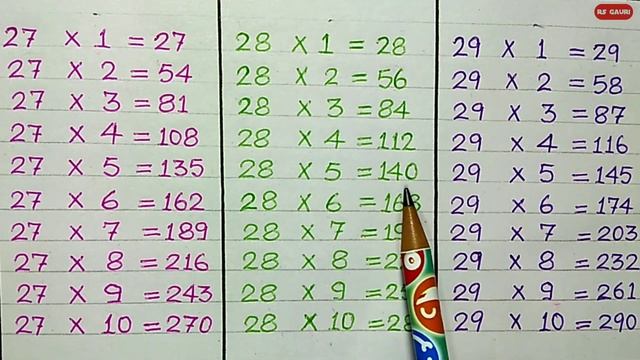 RS GAURI
27 X 1 = 27
27 X 2 = 54
27 X 3 = 81
27 X 4 = 108
27 X 5 = 135
27 X 6 = 162
27 X 7 = 189
27 X 8 = 216
27 X 9 = 243
27 X 10 = 270
28 X 1 = 28
28 X 2 = 56
28 X 3 = 84
28 X 4 = 112
28 X 5 = 140
28 X 6 = 168
28 X 7 =
28 X 8 =
28 X 9 =
28 X 10 =
29 X 1 = 29
29 X 2 = 58
29 X 3 = 87
29 X 4 = 116
29 X 5 = 145
29 X 6 = 174
29 X 7 = 203
29 X 8 = 232
29 X 9 = 261
29 X 10 = 290